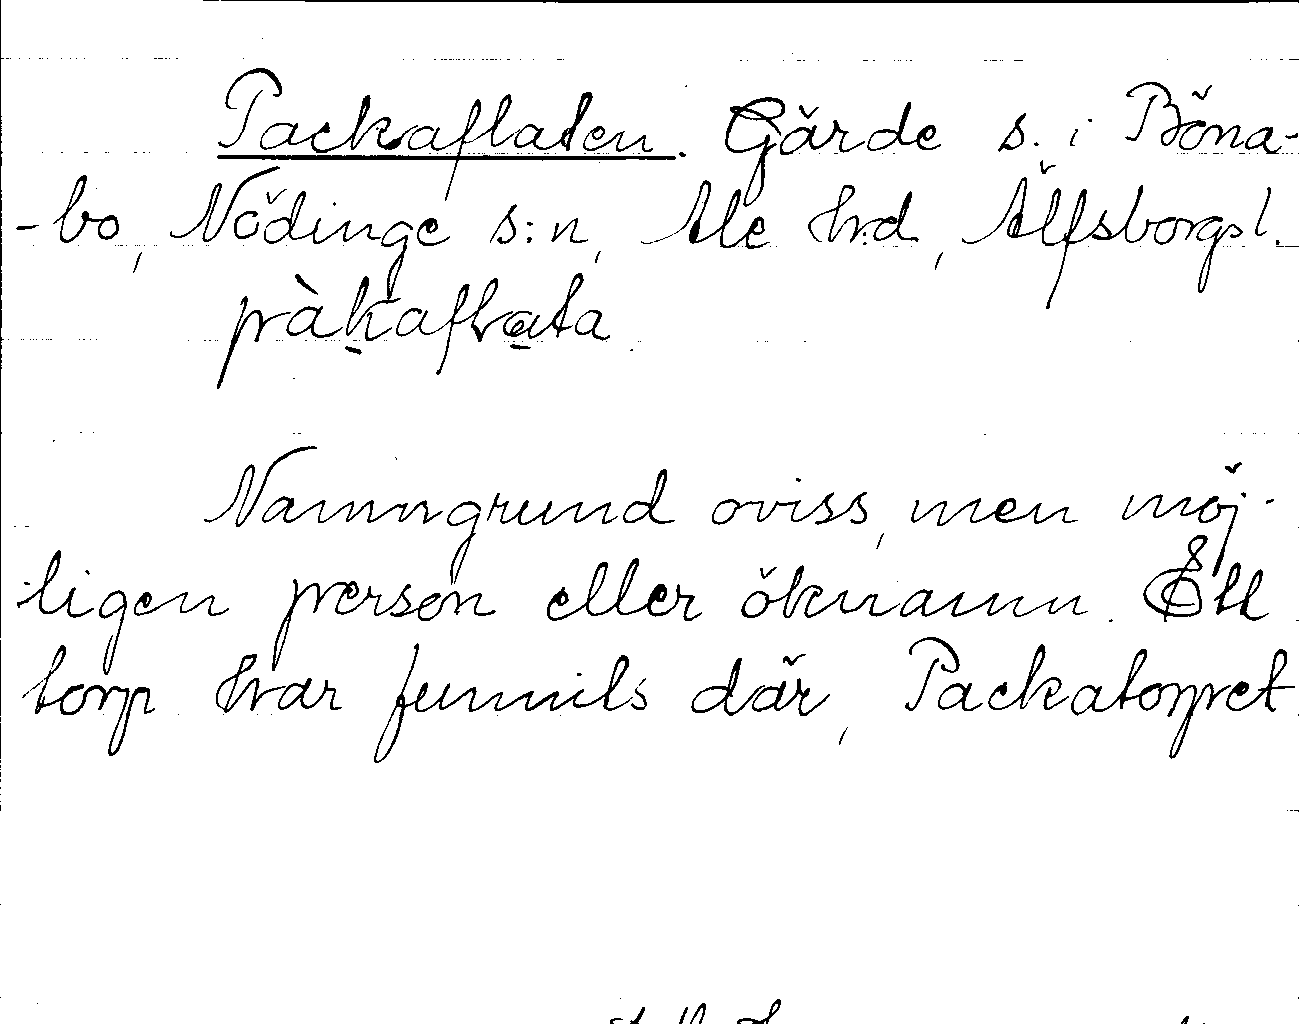 Packaflaten. Gärde s. i Böna-
-bo, Nödinge s:n, Ale hd, Älfsborgsl.
pàkaflata
Namngrund oviss, men möj-
ligen person eller öknamn. Ett
torp har funnits där, Packatorpet